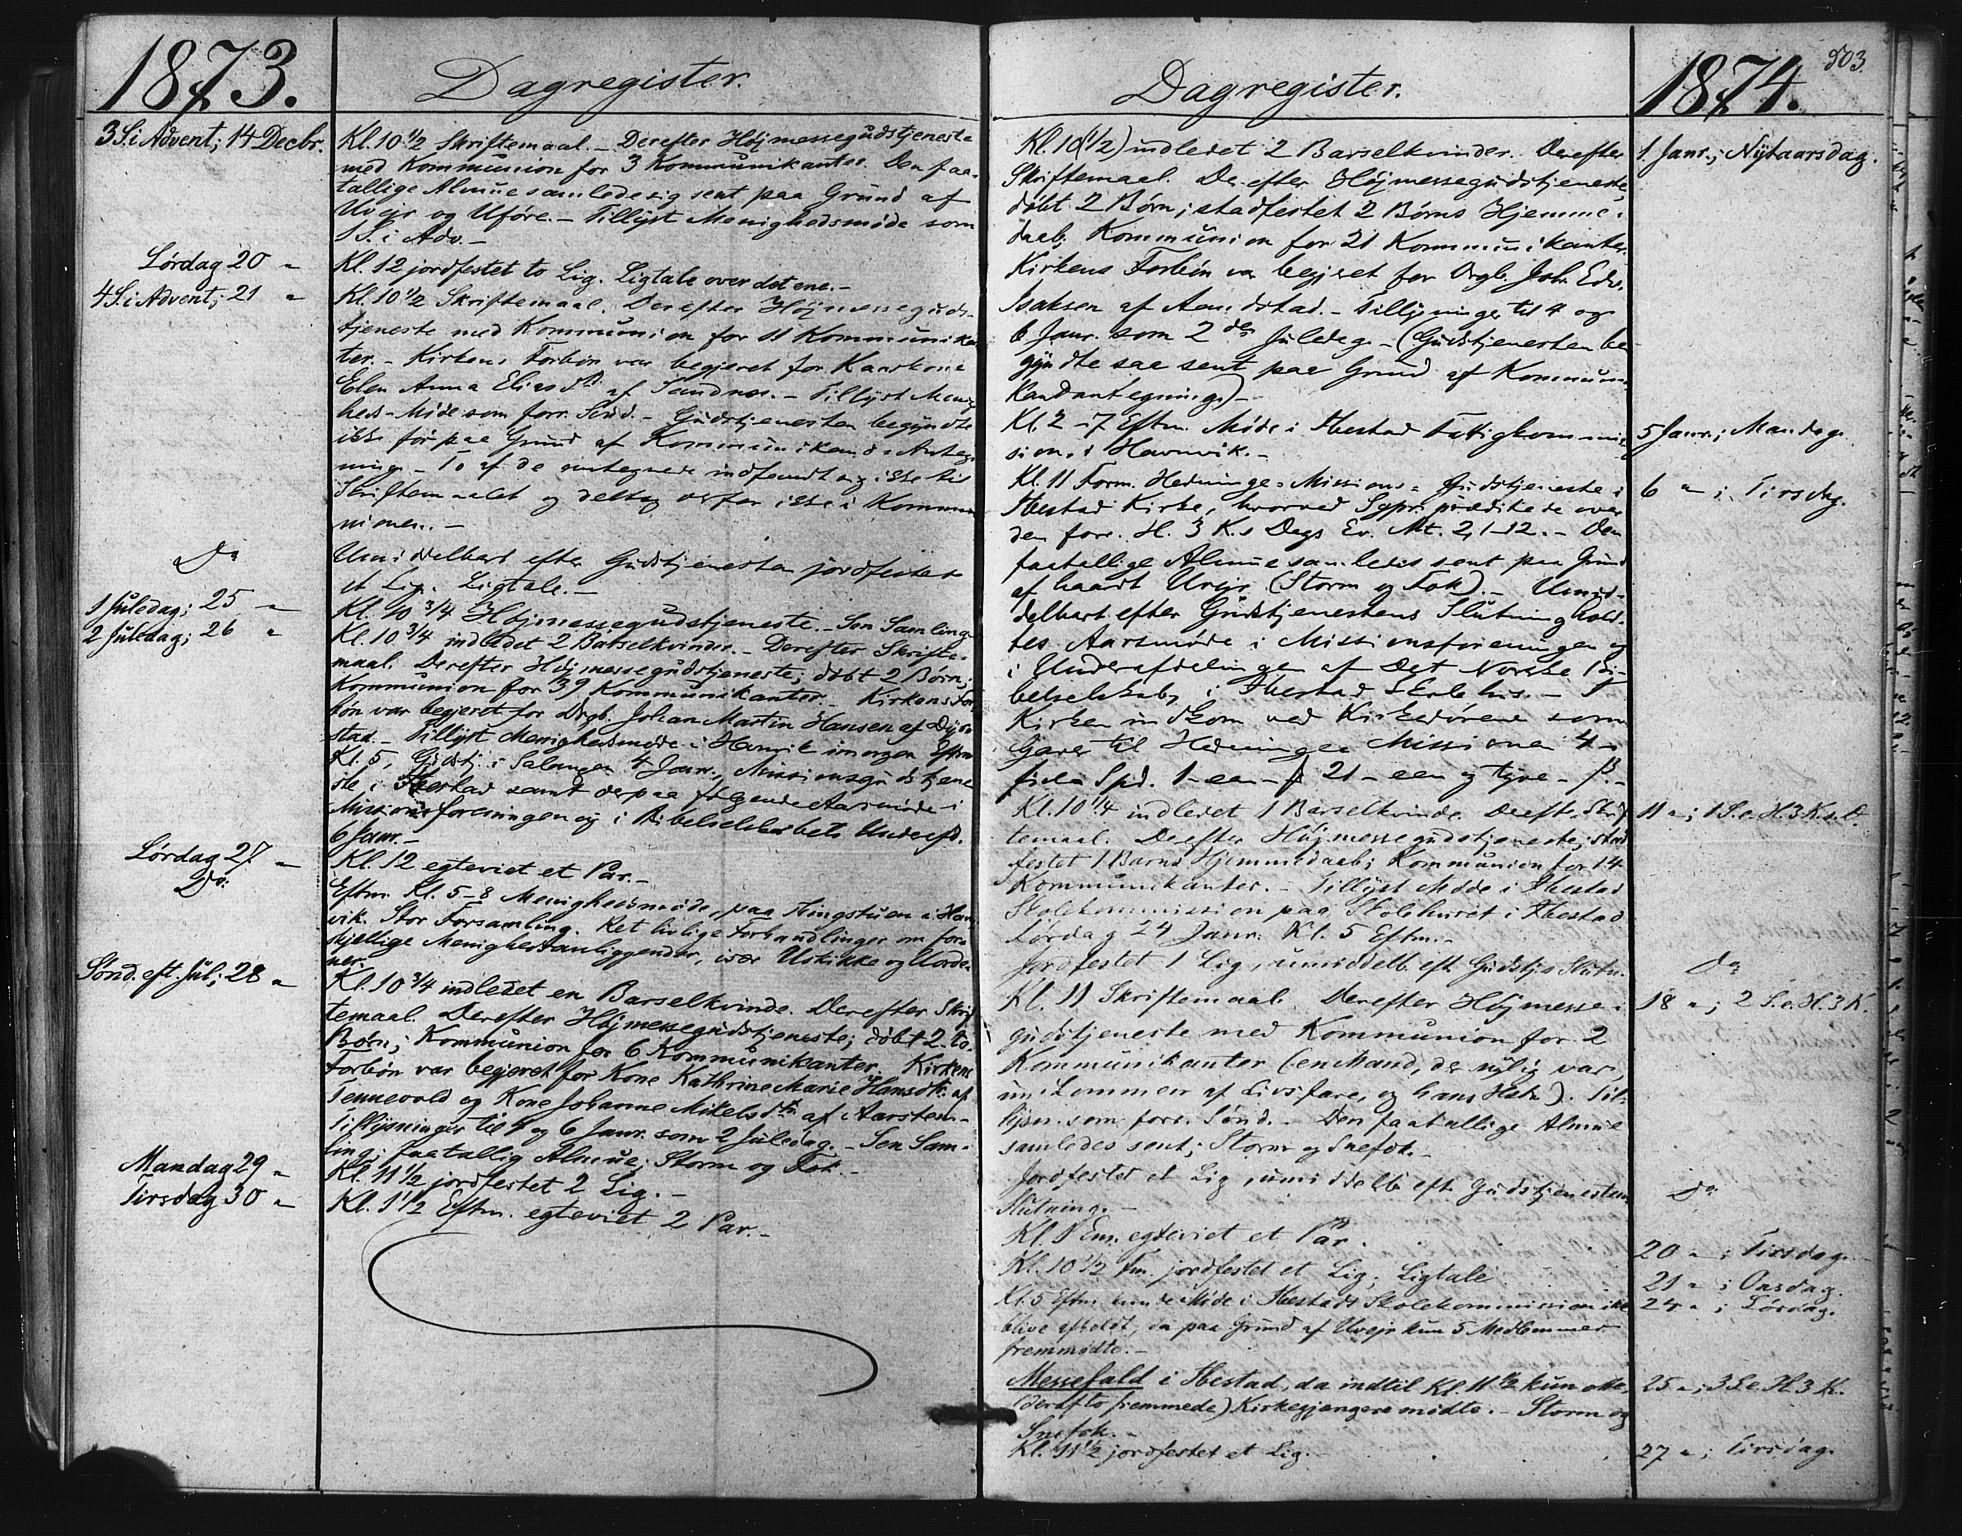 1873.
Dagregister.
3 S. i Advent; 14 Decbr.
Kl. 10 1/2 Skriftemaal. – Derefter Højmessegudstjeneste
med Kommunion for 3 Kommunikanter. Den faa-
tallige Almue samlede sig sent paa Grund af
Uvejr og Uføre. – Tillyst Menighedsmøde som
1 S. i Adv. –
Lørdag 20 "
Kl. 12 jordfestet to Lig. Ligtale over det ene. –
4 S. i Advent; 21 "
Kl. 10 1/2 Skriftemaal. Derefter Højmesseguds-
tjeneste med Kommunion for 11 Kommunikan-
ter. – Kirkens Forbøn var begjeret for Kaarkone
Elen Anna Eliasd. af Sandnes. – Tillyst Menig-
heds-Møde som forr. Sønd. – Gudstjenesten begyndte
ikke før paa Grund af Kommunikand-Anteg-
ning. – To af de antegnede indfandt sig ikke til
Skriftemaalet og deltog derfor ikke i Kommu-
nionen. –
Do
Umiddelbart efter Gudstjenesten jordfestet
et Lig. Ligtale. –
1 Juledag; 25 "
Kl. 10 3/4 Højmessegudstjeneste. – Sen Samling.
2 Juledag; 26 "
Kl. 10 3/4 indledet 2 Barselkvinder. – Derefter Skrifte-
maal. Derefter Højmessegudstjeneste; døbt 2 Børn;
Kommunion for 39 Kommunikanter. – Kirkens For-
bøn var begjeret for Drgb. Johan Martin Hansen af
stad. – Tillyst Menighedsmøde i Havnvik imorgen Efterm.
Kl. 5, Gudstj. i Salangen 4 Janr., Missionsgudstjene-
ste i Ibestad samt derpaa følgende Aarsmøde i
Missionsforeningen og i Bibelselskabets Underafd.
6 Janr. –
Lørdag 27 "
Kl. 12 egteviet et Par. –
Do.
Eftm. Kl. 5–8 Menighedsmøde paa Thingstuen i Havn-
vik. Stor Forsamling. Ret livlige Forhandlinger om for-
skjellige Menighedsanliggender, især Uskikke og Uorde-
ner.
Sønd. eft. Jul; 28 "
Kl. 10 3/4 indledet en Barselkvinde. Derefter Skrif-
temaal. Derefter Højmessegudstjeneste; døbt 2 to
Børn; Kommunion for 6 Kommunikanter. Kirkens
Forbøn var begjeret for Kone Kathrine Marie Hansdtr. af
Tennevold og Kone Johanne Mikelsdtr. af Aarsten. –
Tillysninger til 4 og 6 Janr. som 2 Juledag. – Sen Sam-
ling; faatallig Almue; Storm og Fok. –
Mandag 29 "
Kl. 11 1/2 jordfestet 2 Lig. –
Tirsdag 30 "
Kl. 1 1/2 Eftm. egteviet 2 Par. –
503.
Dagregister.
1874.
1 Janr.; Nytaarsdag.
Kl. 10 (1/2) indledet 2 Barselkvinder. Derefter
Skriftemaal. Derefter Højmessegudstjeneste;
døbt 2 Børn; stadfestet 2 Børns Hjemme-
daab; Kommunion for 21 Kommunikanter.
Kirkens Forbøn var begjeret for Drgb. Joh. Edv.
Isaksen af Aandstad. – Tillysninger til 4 og
6 Janr. som 2den Juledag. – (Gudstjenesten be-
gyndte saa sent paa Grund af Kommuni-
kandantegning.) –
5 Janr.; Mandag.
Kl. 2–7 Eftm. Møde i Ibestad Fattigkommis-
sion i Havnvik. –
6 "; Tirsdag.
Kl. 11 Form. Hedninge-Missions-Gudstjeneste i
Ibestad Kirke, hvorved Sgpr. prædikede over
den forr. H. 3 K.s Dags Ev. Mt. 2, 1–12. – Den
faatallige Almue samledes sent paa Grund
af haardt Uvejr (Storm og Fok). – Umid-
delbart efter Gudstjenestens Slutning hold-
tes Aarsmøde i Missionsforeningen og
i Underafdelingen af Det Norske Bi-
belselskab, i Ibestad Skolehus. – I
Kirken indkom ved Kirkedørene som
Gaver til Hedninge Missionen 4 –
fire Spd. 1 – een – ß 21 – een og tyve – ß. –
11 "; 1 S. e. H. 3 K. s. D.
Kl. 10 1/4 indledet 1 Barselkvinde. Derefter Skrif-
temaal. Derefter Højmessegudstjeneste; stad-
festet 1 Barns Hjemmedaab; Kommunion for 14
Kommunikanter. – Tillyst Møde i Ibestad
Skolekommission paa Skolehuset i Ibestad
Lørdag 24 Janr. Kl. 5 Eftm. –
Do
Jordfestet 1 Lig, umiddelb. eft. Gudstjs Slutn.
18 "; 2 S. e. H. 3 K.
Kl. 11 Skriftemaal. Derefter Højmesse-
gudstjeneste med Kommunion for 2
Kommunikanter (en Mand, der nylig var
undkommen af Livsfare, og hans ). Til-
lysn. som forr. Sønd. – Den faatallige Almue
samledes sent; Storm og Snefok. –
Do
Jordfestet et Lig, umiddelb. eft. Gudstjenestens
Slutning. –
20 "; Tirsdag.
Kl. 1 Em. egteviet et Par.
21 "; Onsdag.
Kl. 10 1/2 Fm. jordfestet et Lig; Ligtale.
24 "; Lørdag.
Kl. 5 Eftm. kunde Møde i Ibestads Skolekommission ikke
blive afholdt, da paa Grund af Uvejr kun 5 Medlemmer
fremmødte. –
25 "; 3 S. e. H. 3 K.
Messefald i Ibestad, da indtil Kl. 11 1/2 kun otte
(deraf to fremmede) Kirkegjengere mødte. – Storm og
Snefok. –
27 "; Tirsdag.
Kl. 11 1/2 jordfestet et Lig. –